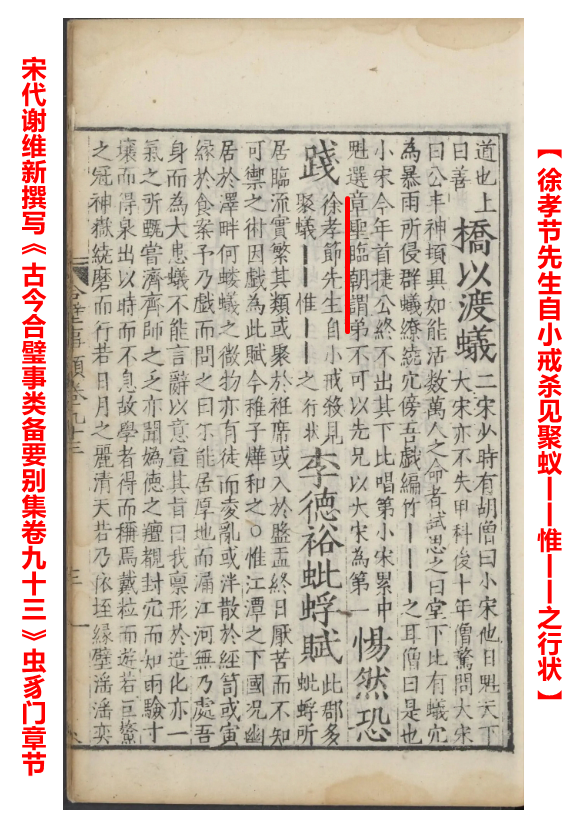 【徐孝节先生自小戒杀见聚蚁——惟——之行状】
道也上
曰善
橋以渡蟻
二宋少時有胡僧曰小宋他日魁天下
大宋亦不失甲科後十年僧驚問大宋
曰公丰神頓具如能活數萬人之命者試思之曰堂下比有蟻穴
為暴雨所侵群蟻繚繞穴傍吾戲編竹———之耳僧曰是也
小宋今年首捷公終不出其下比唱第小宋累中
魁選章聖臨朝謂弟不可以先兄以大宋為第一
惕然恐
踐
徐孝節先生自小戒殺見
聚蟻——惟——之行状
李德裕蚍蜉賦
此郡多
蚍蜉所
居臨流實繁其類或聚於袵席或入於盤盂終日厭苦而不知
可禦之術因戲為此賦今稚子燁和之○惟江潭之下國况幽
居於澤畔何螻蟻之微物亦有徒而凌亂或泮散於經笥或寅
緣於食案予乃戲而問之曰尒能居厚地而漏江河無乃處吾
身而為大患蟻不能言辭以意宣其旨曰我禀形於造化亦一
氣之所甄嘗濟齊師之乏亦聞媯德之羶襯封穴而知雨驗寸
壤而得泉出以時而不息故學者得而稱焉戴粒而遊若巨鰲
之冠神嶽繞磨而行若日月之麗清天若乃依垤緣壁滛滛奕
合璧事類卷九十三
宋代谢维新撰写《古今合璧事类备要别集卷九十三》虫豸门章节